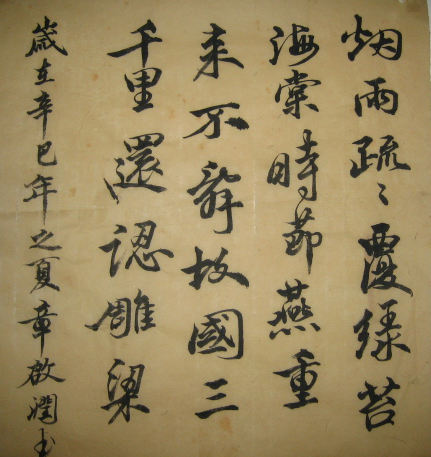 烟雨疏〻覆緑苔
海棠時節燕重
来不辤故國三
千里還認雕梁
歲在辛巳年之夏章啟潤